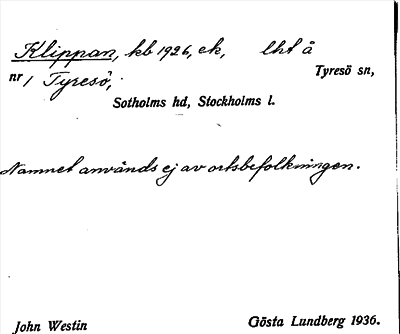 Klippan, kb 1926, ek, lht å
nr 1 Tyresö, Tyresö sn,
Sotholms hd, Stockholms l.
Namnet används ej av ortsbefolkningen.
John Westin Gösta Lundberg 1936.